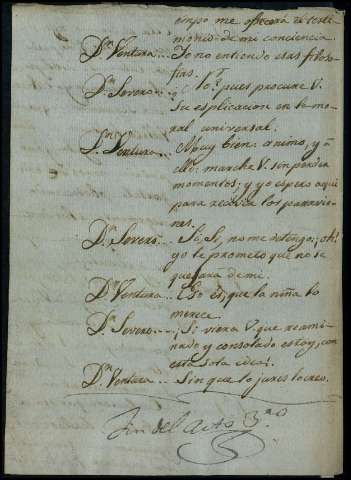 empo me ofrecerá el testi-
monio de mi conciencia.
Dn. Ventura... Yo no entiendo esas filoso-
fias.
Dn. Severo... No? pues procure V.
su esplicacion en la mo-
ral universal.
Dn. Ventura... Muy bien: animo, y a
ello: marche V. sin perder
momentos; y yo espero aqui
para recivir los parravie-
nes.
Dn. Severo... Si, Si, no me detengo: ¡oh!
yo le prometo que no se
quejara de mi.
Dn. Ventura... Eso es, que la niña lo
merece.
Dn. Severo... ¡Si viera V. que reami-
nado y consolado estoy, con
esta sola idea!
Dn. Ventura... Sin que lo jures lo creo.
Fin del acto 3.ro